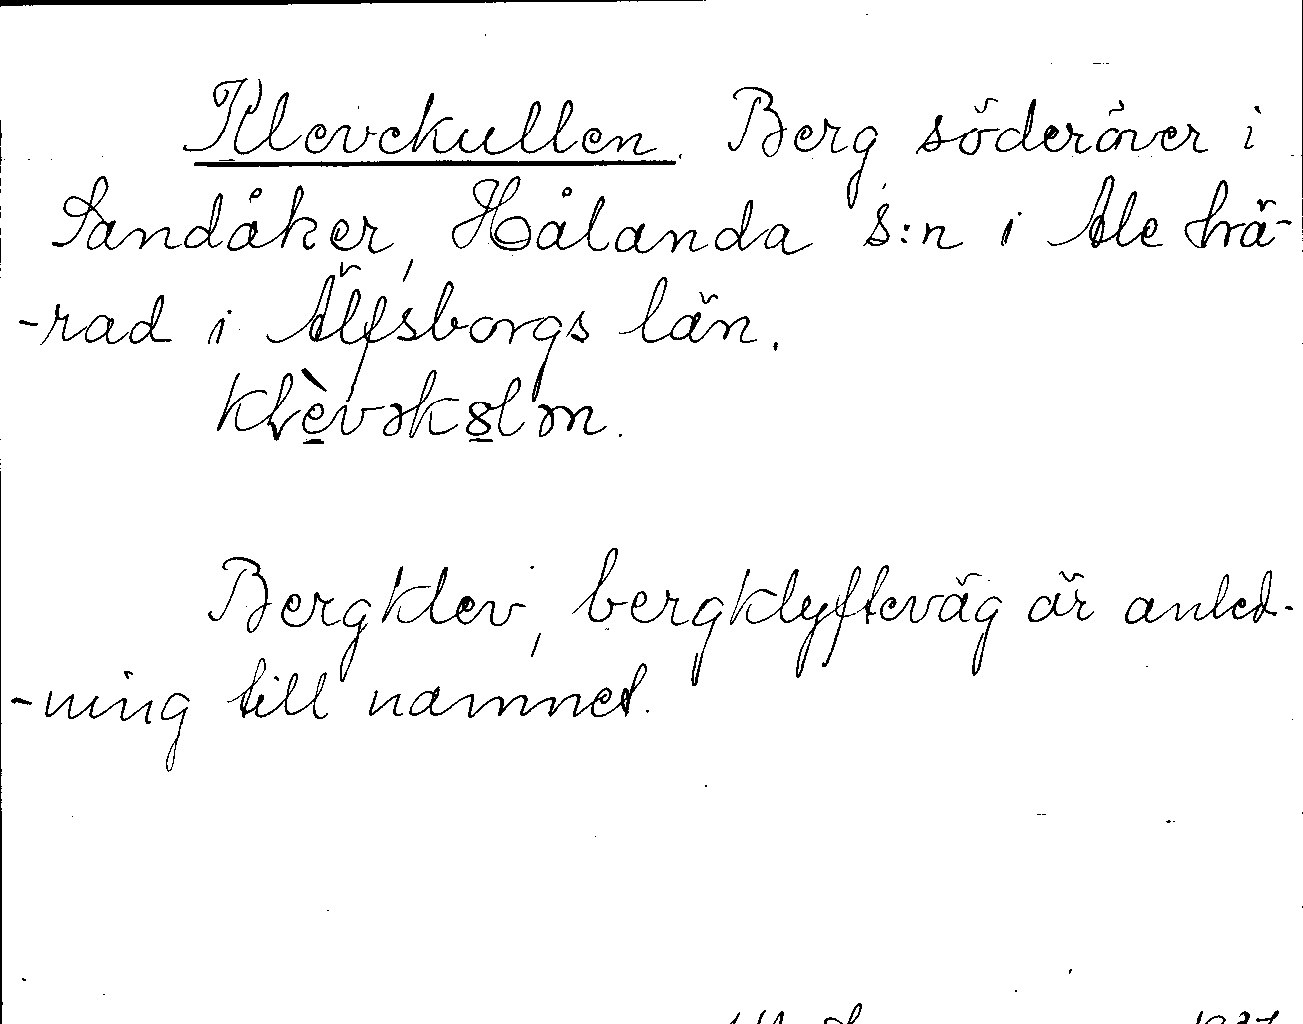 Klevekullen. Berg söderöver i
Sandåker, Hålanda s:n i Ale hä-
-rad i Älfsborgs län.
Bergklev, bergklyfteväg är anled-
-ning till namnet.